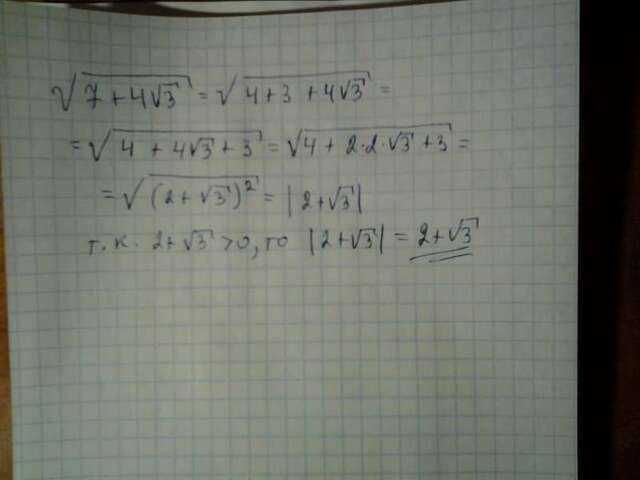 √(7 + 4√3) = √(4 + 3 + 4√3) =
= √(4 + 4√3 + 3) = √(4 + 2·2·√3 + 3) =
= √((2 + √3)²) = |2 + √3|
т.к. 2 + √3 > 0, то |2 + √3| = 2 + √3